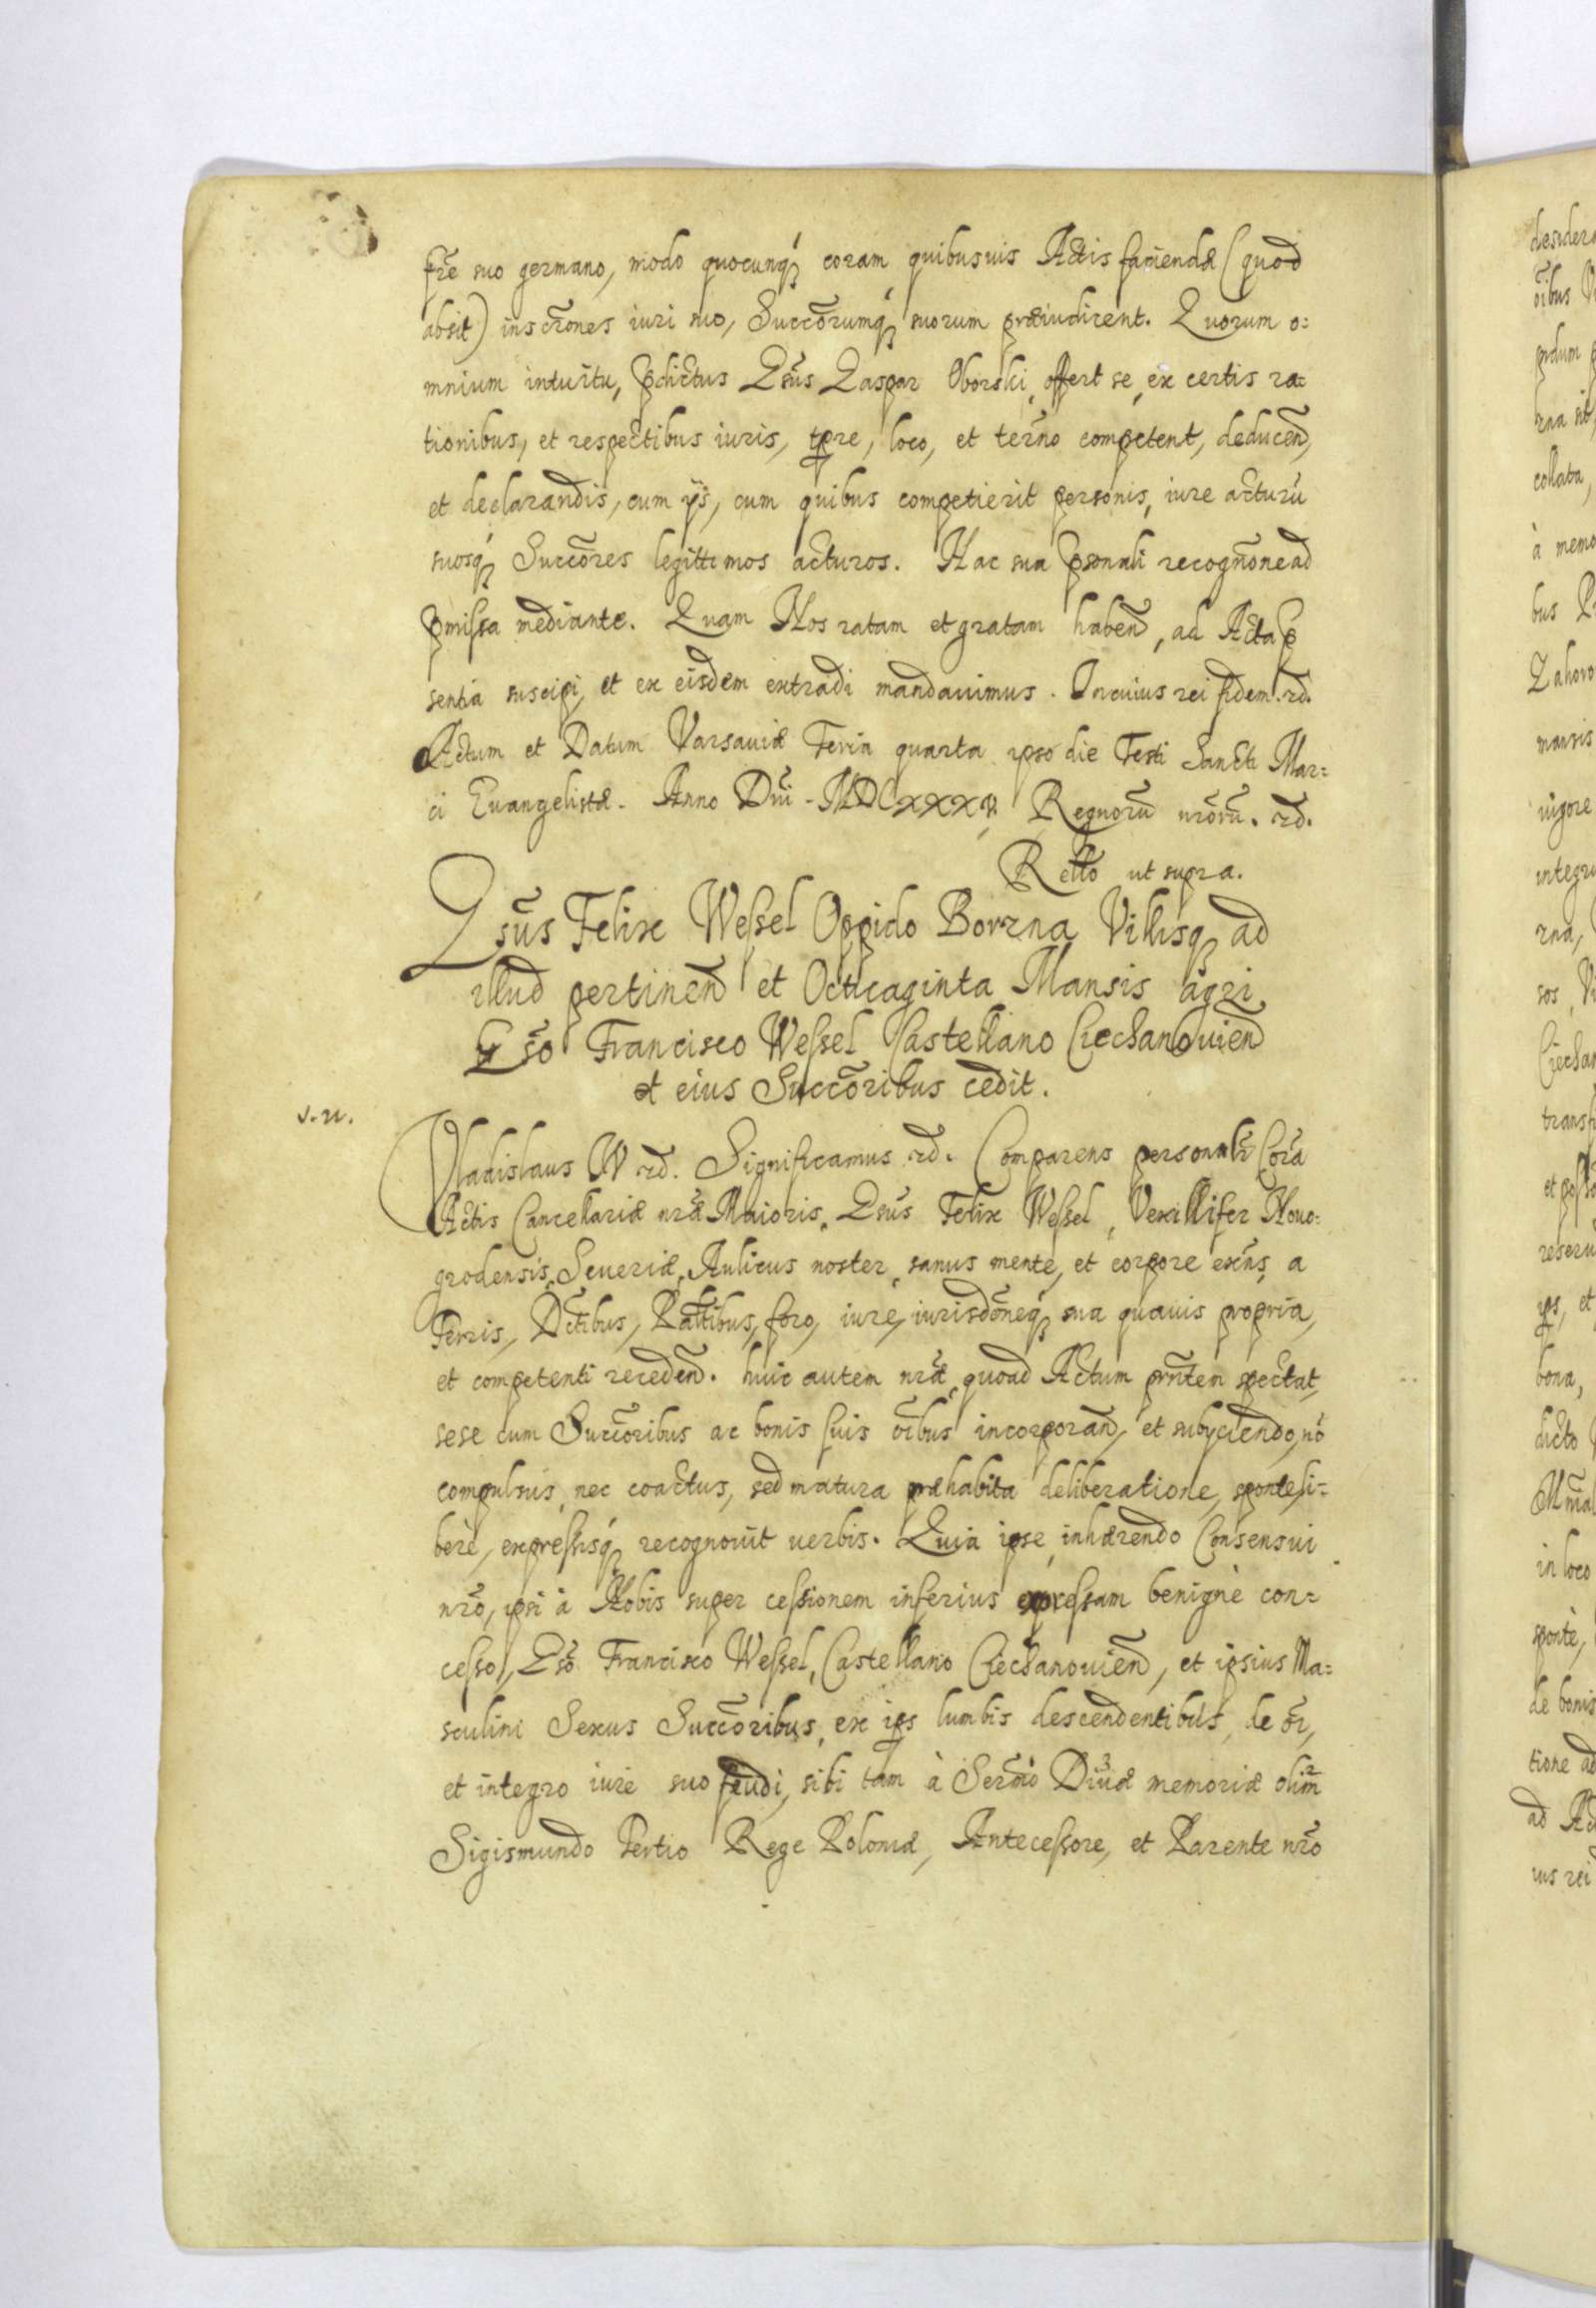 fr̃e suo germano, modo quocunq́ꝫ coram quibusuis Actis faciendæ (quod
absit) inscr̃ones iuri suo, Succõrumq́ꝫ suorum præiudicent. Quorum o:
mnium intuitu, p̃dictus Gñsus Gaspar Oborski, offert se, ex certis ra:
tionibus, et respectibus iuris, tp̃re, loco, et ter̃no competent, deduceñ,
et declarandis, cum ijs, cum quibus competierit personis, iure acturũ
suosq́ꝫ Succõres legittimos acturos. Hac sua p̱sonali recogñone ad
p̃missa mediante. Quam Nos ratam et gratam habeñ, ad Acta p̃
sentia suscipi, et ex eisdem extradi mandauimus. In cuius rei fidem. etc̃.
Actum et Datum Varsauiæ Feria quarta ipso die Festi Sancti Mar=
ci Euangelistæ. Anno Dñi MDCXXXV Regnorũ nr̃orũ. etc̃.
Rel̃to ut supra.
Gñsus Felix Wessel Oppido Borzna Villisq́ꝫ ad
illud pertineñ et Octuaginta Mansis agri
Gñso Francisco Wessel Castellano Ciechanouieñ
et eius Succõribus cedit.
Vladislaus IV etc̃. Significamus etc̃. Comparens personalr̃ Corã
Actis Cancellariæ nr̃æ Maioris, Gñsus Felix Wessel, Vexillifer Nouo:
grodensis Seueriæ, Aulicus noster, sanus mente, et corpore exñs, a
Terris, Dctĩbus, Palttĩbus, foro, iure, iurisdõneq́ꝫ sua quauis propria,
et competenti recedeñ. huic autem nr̃æ, quoad Actum pr̃ntem spectat,
sese cum Succõribus ac bonis suis oĩbus incorporañ, et subijciendo, nõ
compulsus, nec coactus, sed matura præhabita deliberatione, sponte, li=
berè, expressisq́ꝫ recognouit uerbis. Quia ipse, inhærendo Consensui
nr̃o, ipsi à Nobis super cessionem inferius expressam benignè con=
cesso, Gñso Francisco Wessel, Castellano Ciechanouieñ, et ipsius Ma=
sculini Sexus Succõribus, ex ip̃s lumbis descendentibus, de õi,
et integro iure suo feudi, sibi tam à Ser̃mo Diuæ memoriæ olim̃
Sigismundo Tertio Rege Poloniæ, Antecessore, et Parente nr̃o